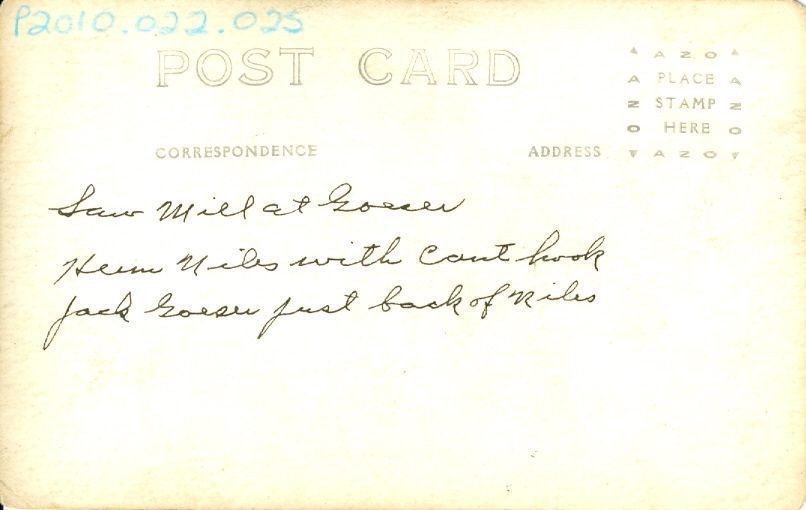 P2010.022.025
POST CARD
AZO
A PLACE A
Z STAMP Z
O HERE O
AZO
CORRESPONDENCE ADDRESS
Saw Mill at Goeser
Niles with Cant hook
Jack Goeser just back of Niles